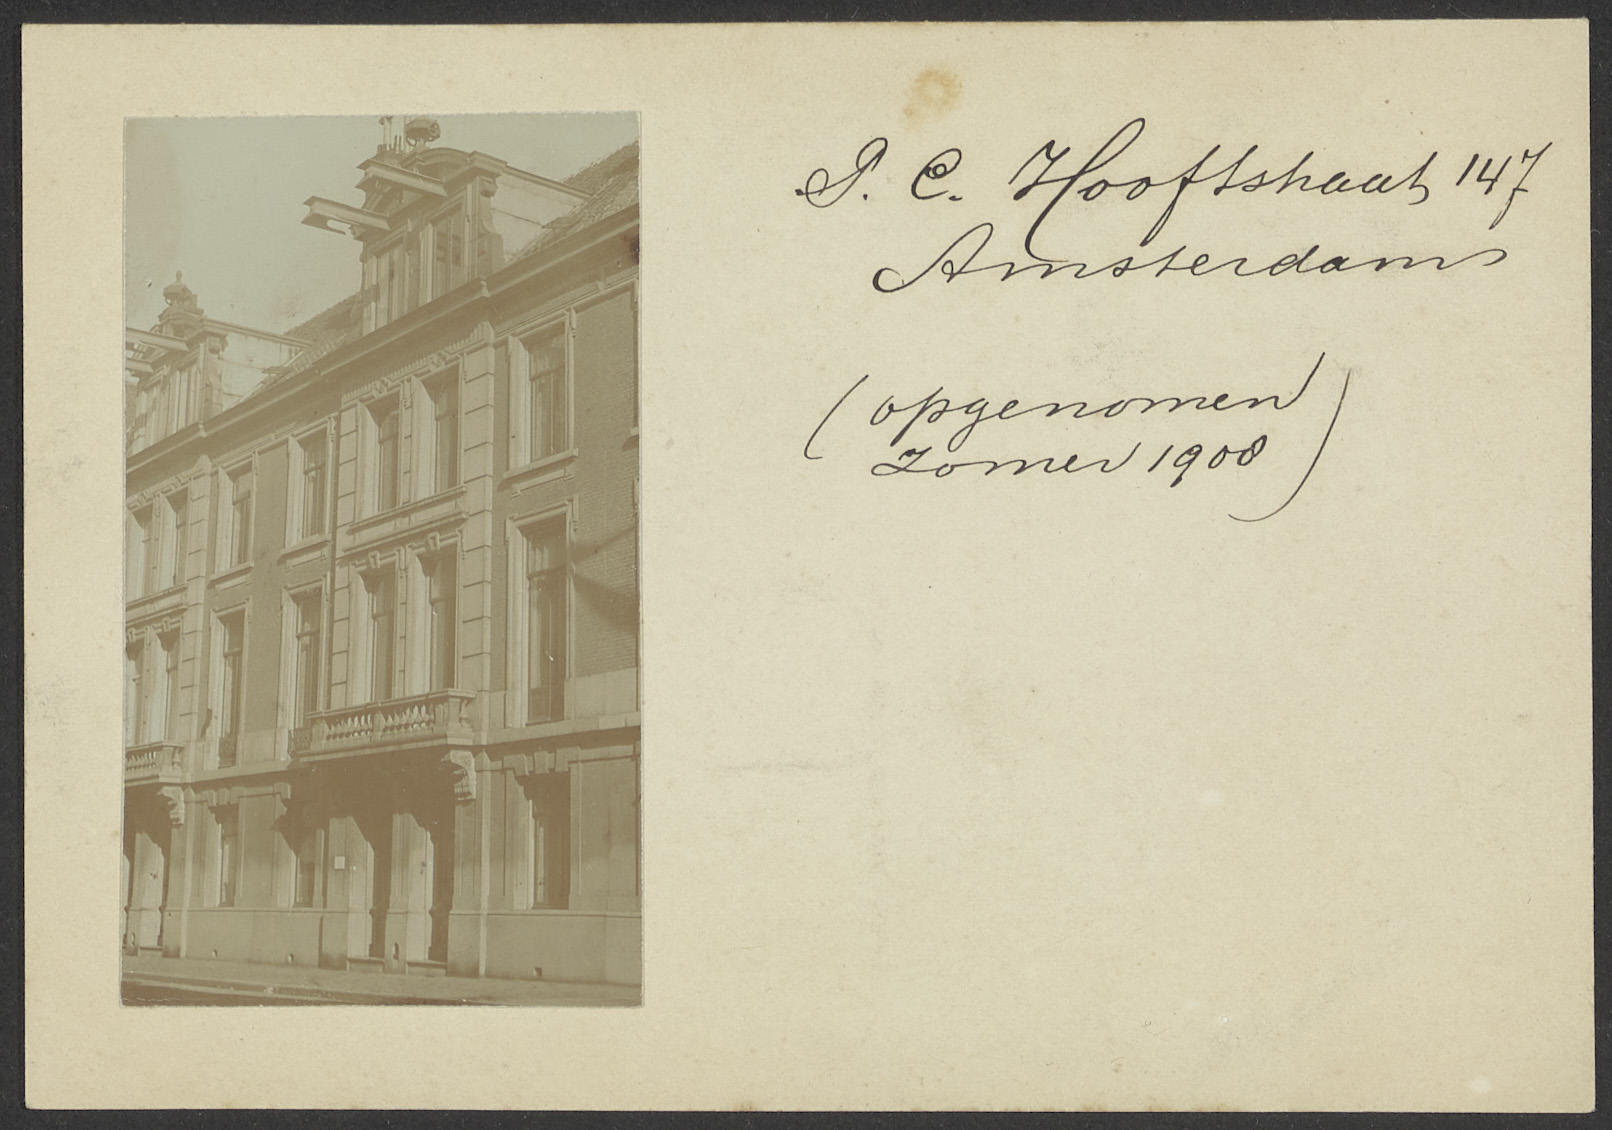 P. C. Hooftstraat 147
Amsterdam
(opgenomen
zomer 1908)